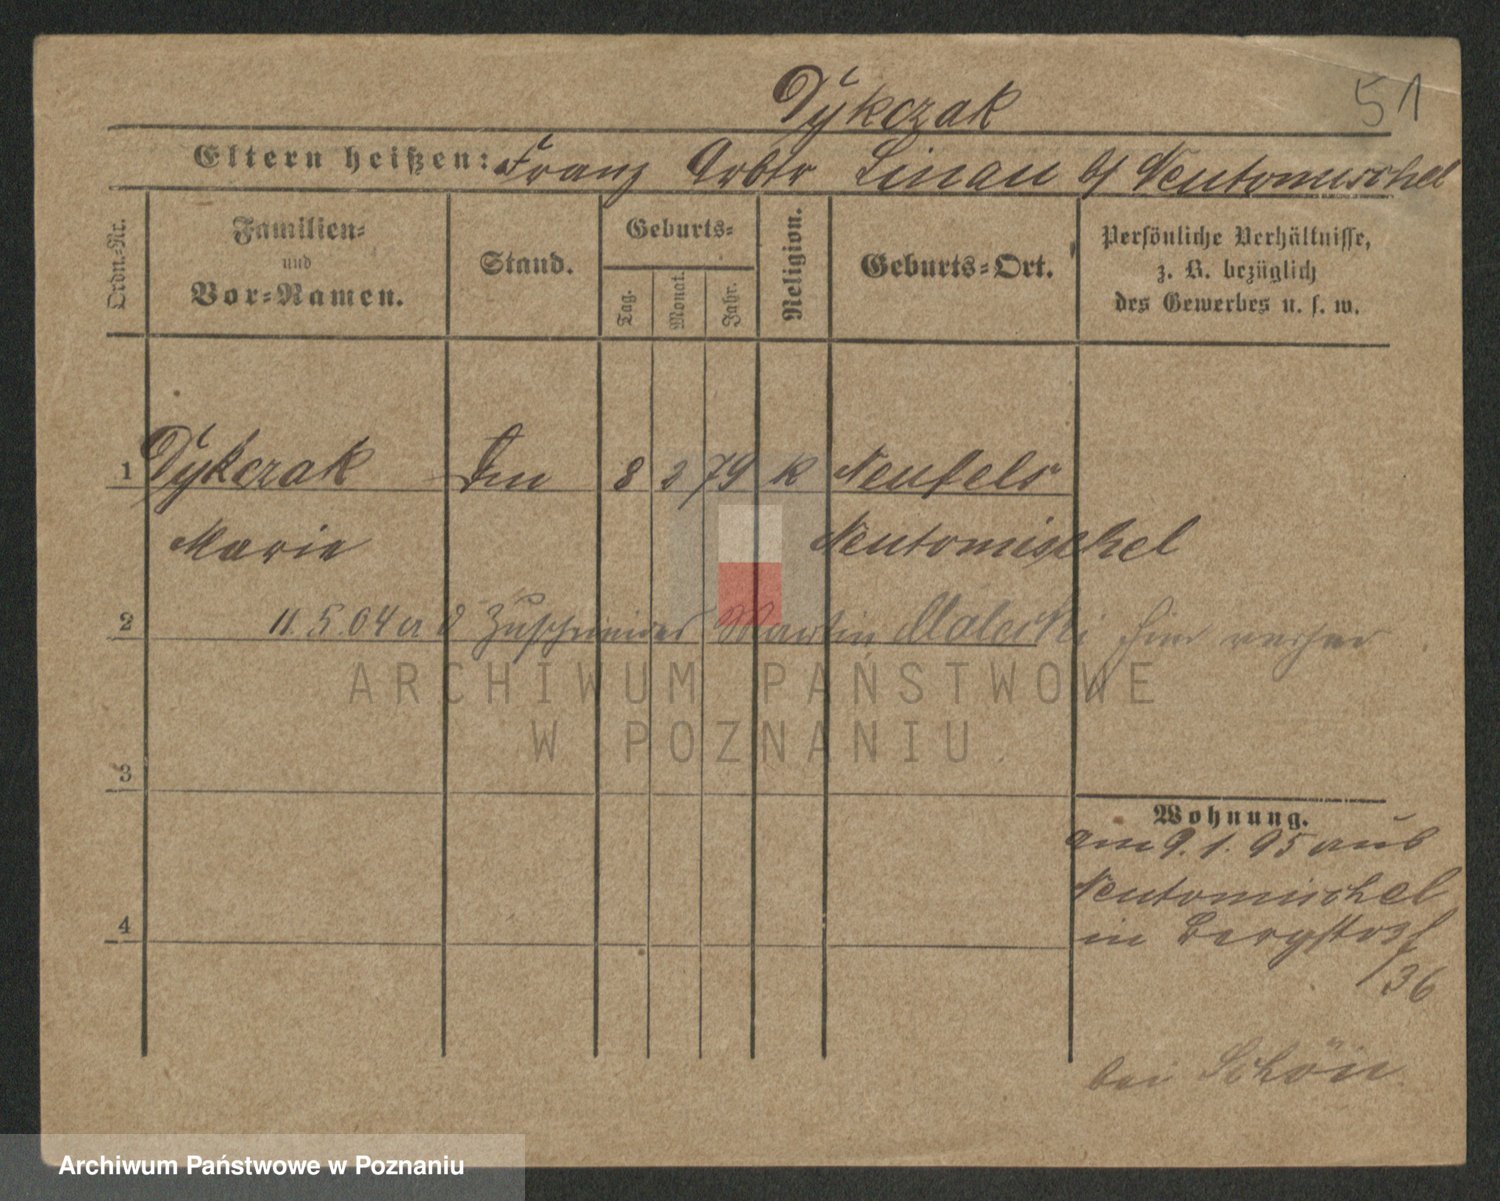 51
Dykczak
Eltern heißen: Franz Arbtr Linau b/ Neutomischel
Ordn.-Nr.
Familien-
und
Vor-Namen.
Stand.
Geburts-
Tag.
Monat.
Jahr.
Religion.
Geburts-Ort.
Persönliche Verhältnisse,
z. B. bezüglich
des Gewerbes u. s. w.
1 Dykczak 8 3 79 k Neufeld
Marie Neutomischel
2 11.5.04 Zuschneider Martin Malecki
ARCHIWUM PAŃSTWOWE
W POZNANIU.
3
Wohnung.
am 9.1.95 aus
Neutomischel
4
in Bergstr
36
bei Schön
Archiwum Państwowe w Poznaniu